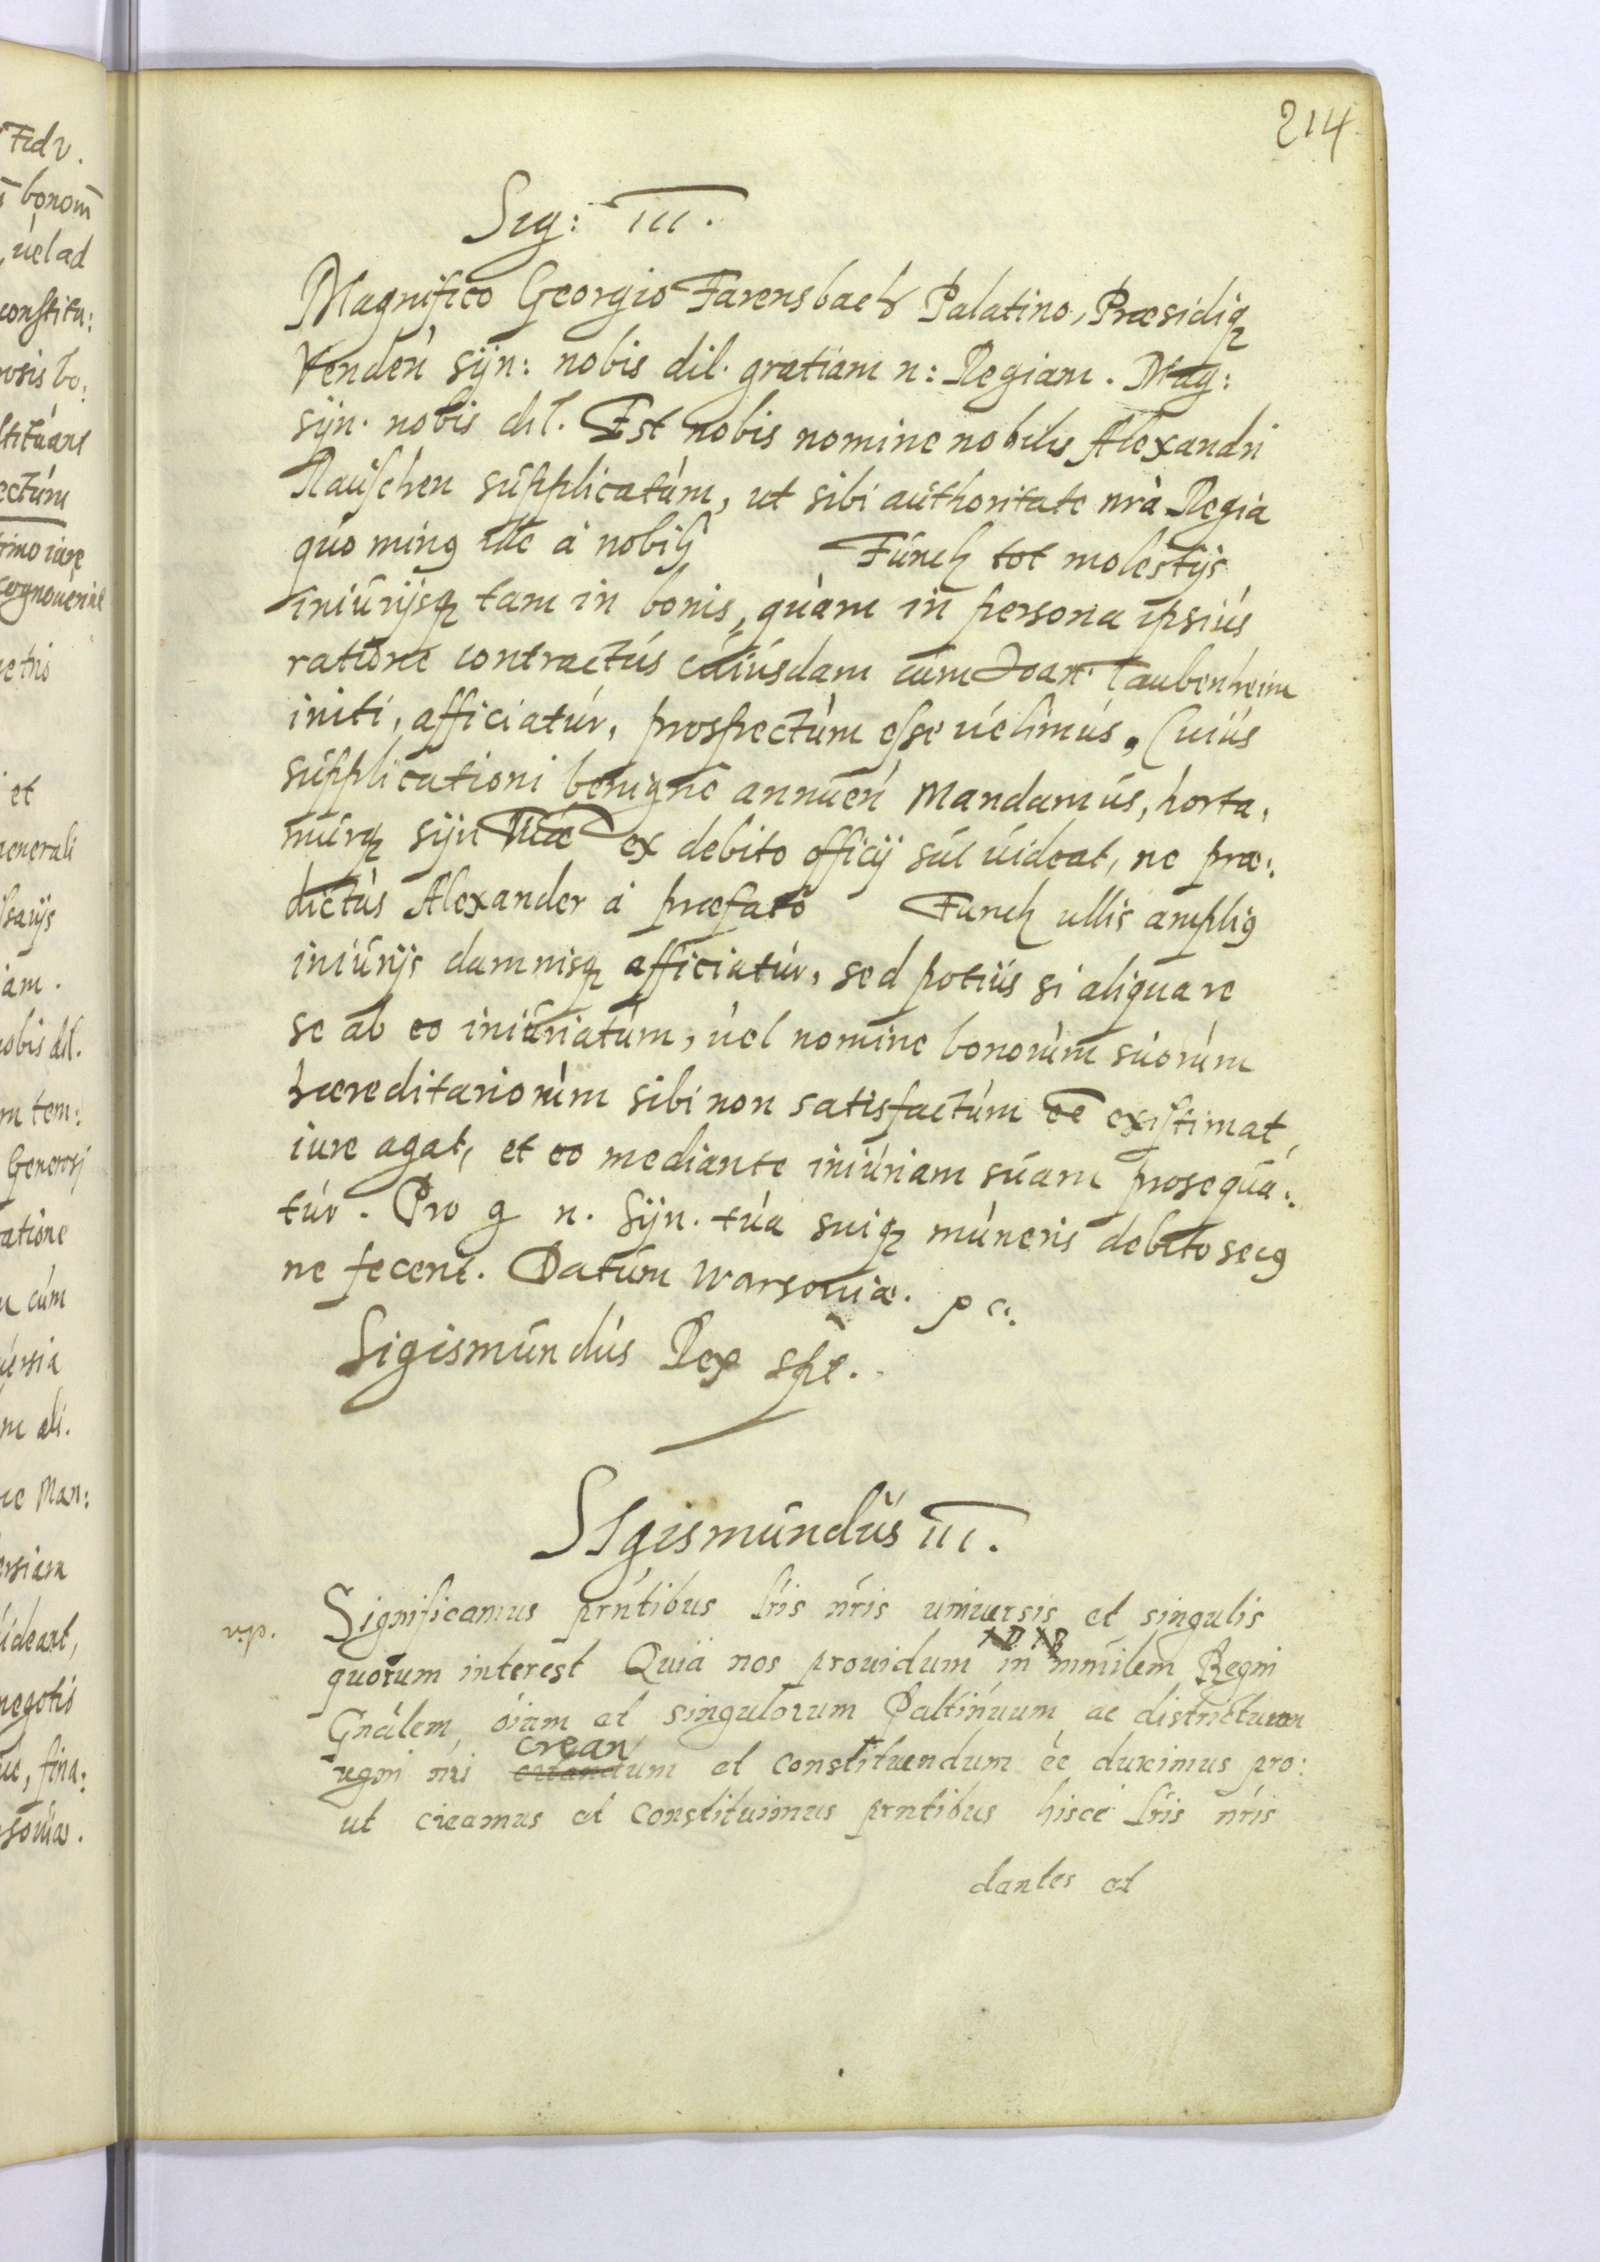 214
Sig: III.
Magnifico Georgio Farensbach Palatino, Præsidiq
Venden syn: nobis dil. gratiam n: Regiam. Mag:
syn. nobis dil. Est nobis nomine nobilis Alexandri
Rauschen supplicatum, ut sibi authoritate nrà Regia
quo ming ille à nobili Funck tot molestijs
iniurijsq tam in bonis, quàm in persona ipsius
ratione contractus cuiusdam cum Joan. Taubenheim
initi, afficiatur, prospectum esse velimus. Cuius
supplicationi benignè annuen Mandamus, horta,
murq syn ex debito officij sui uideat, ne præ:
dictus Alexander à præfato Funck ullis amplig
iniurijs damnisq afficiatur, sed potius si aliqua re
se ab eo iniuriatum, uel nomine bonorum suorum
hæreditariorum sibi non satisfactum ee existimat,
iure agat, et eo mediante iniuriam suam prosequa:
tur. Pro g n. Syn. tua suiq muneris debito secg
ne fecerit. Datum Warsoviæ. p c:
Sigismundus Rex spt.
Sigismundus III.
Significamus prntibus lris nris universis et singulis
quorum interest Quia nos providum in Regni
Gnàlem, oium et singulorum Paltinuum ac districtuum
regni nri crean
um et constituendum ee duximus pro:
ut creamus et constituimus prntibus hisce lris nris
dantes et
Fedv.
bonom
uel ad
constitu:
rosis bo:
stituant
ectum
timo iure
cognouerint
et
generali
iam.
nobis dil.
m tem:
Generosi
ratione
cum
uersia
m ali.
Man:
ersiam
uideant,
negotio
fina:
souiæ.